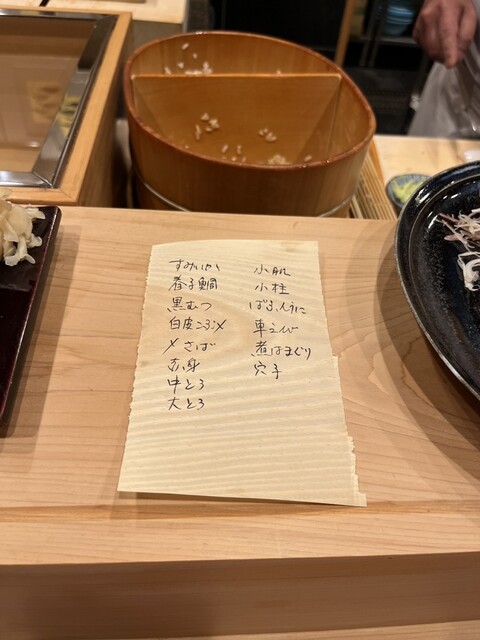 すみいか
春子鯛
黒むつ
白皮こぶ〆
〆さば
赤身
中とろ
大とろ
小肌
小柱
ばふんうに
車えび
煮はまぐり
穴子